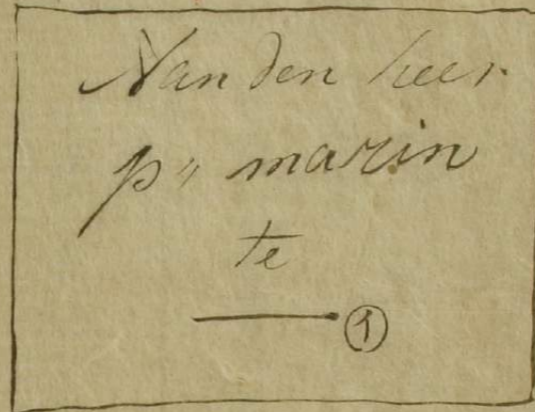 Van den heer
p,, marin
te
①